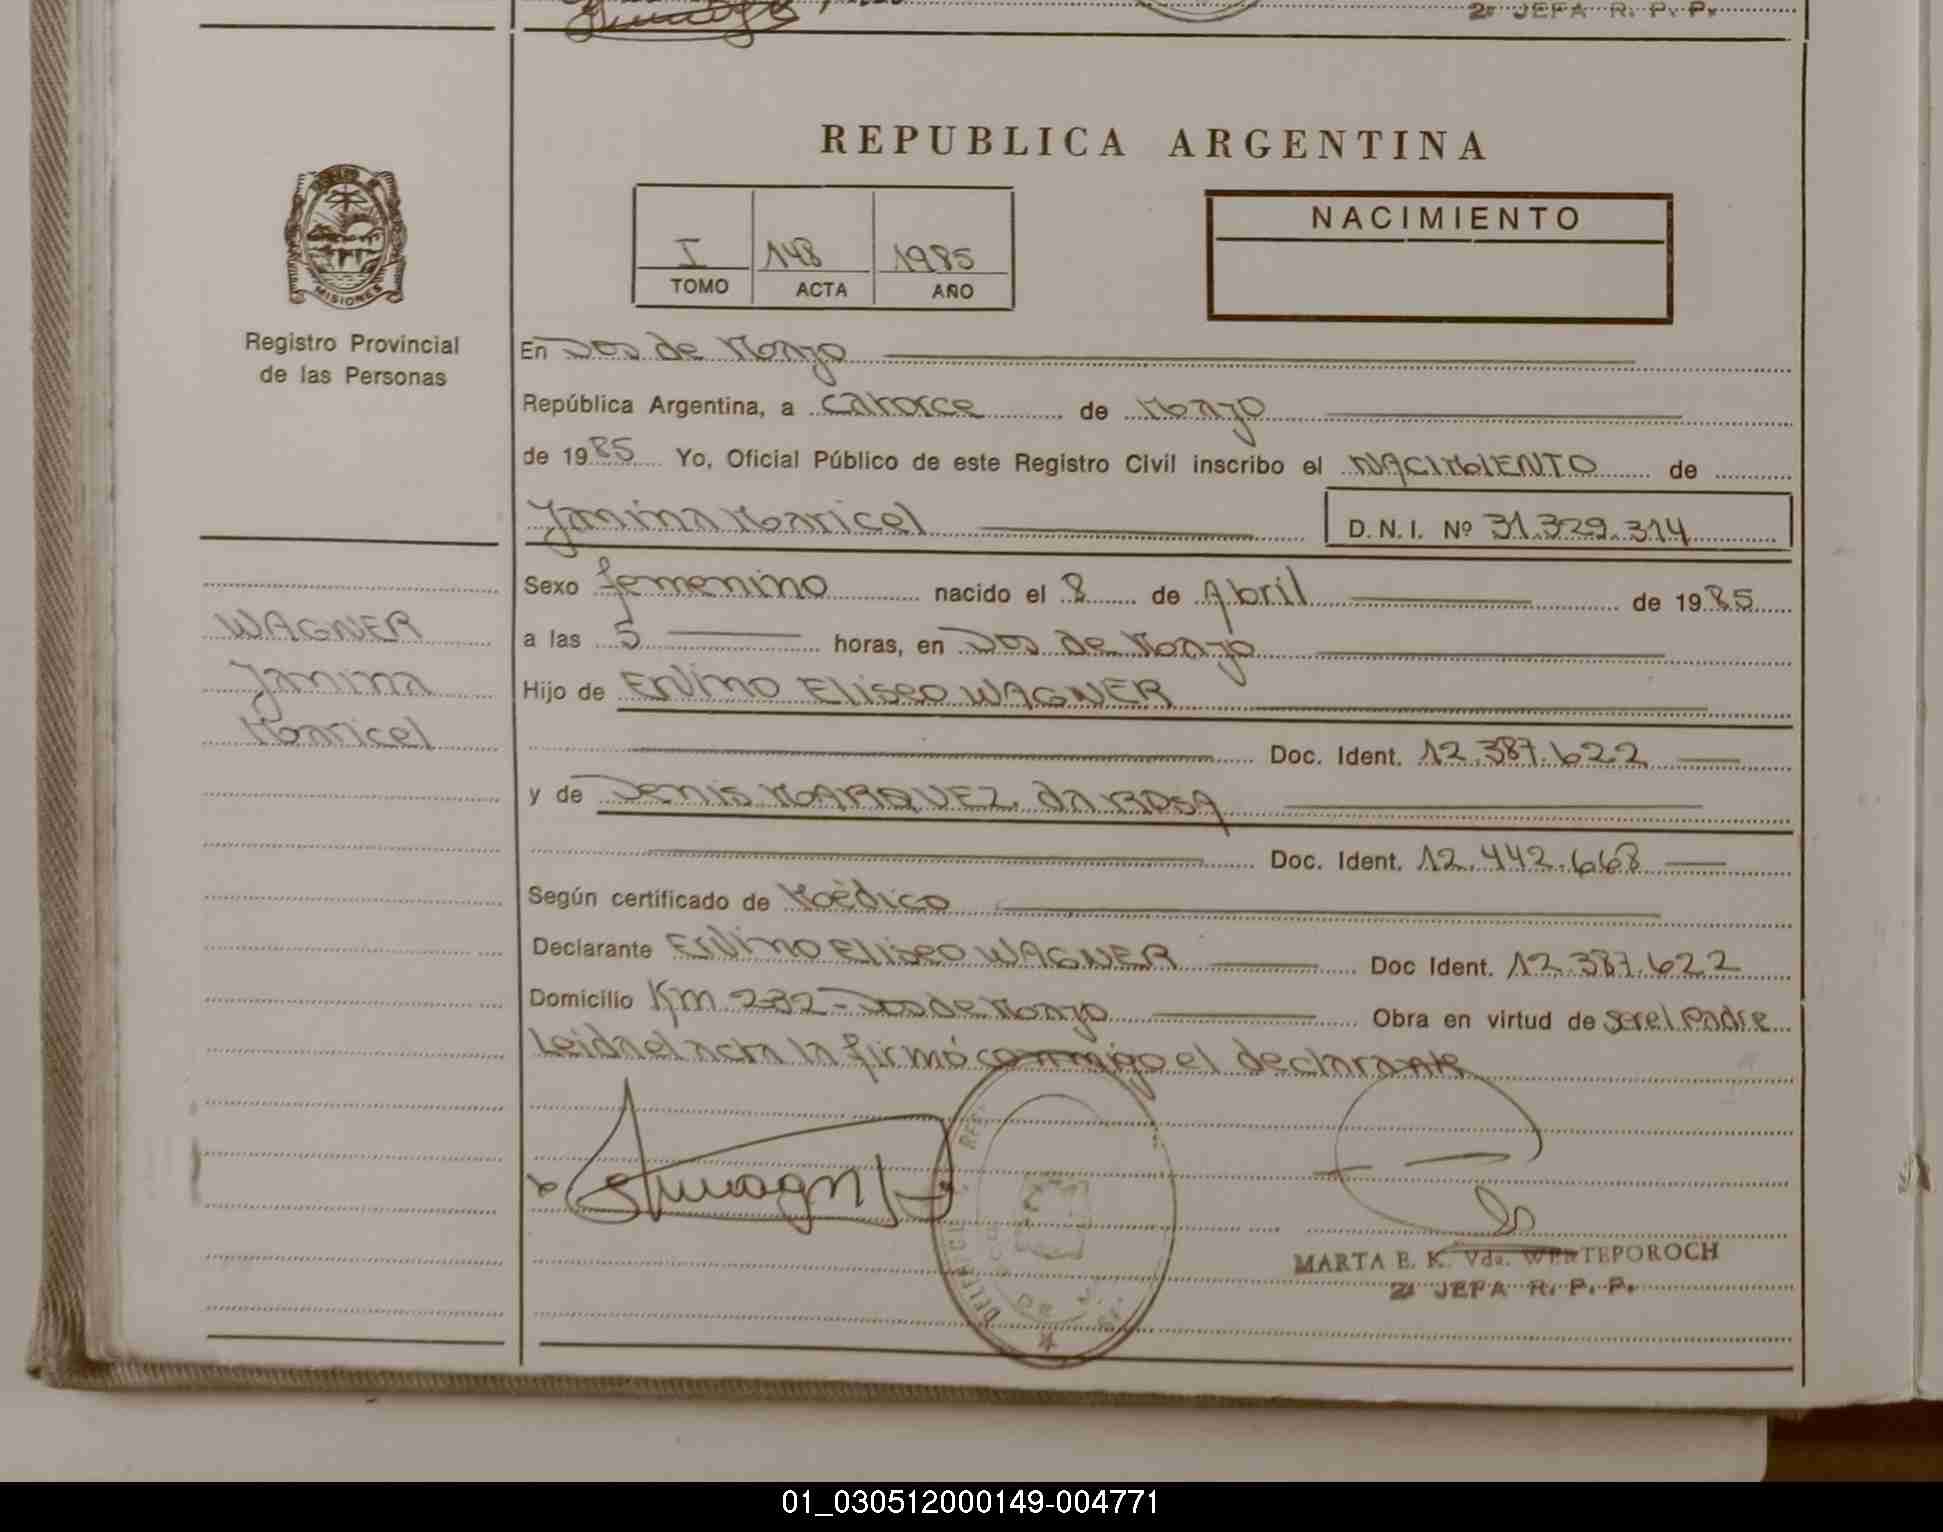 2ª JEFA R. P. P.
REPUBLICA ARGENTINA
MISIONES
Registro Provincial
de las Personas
I 148 1985
TOMO ACTA AÑO
NACIMIENTO
En Dos de Mayo
República Argentina, a catorce de Mayo
de 1985 Yo, Oficial Público de este Registro Civil inscribo el NACIMIENTO de
Yanina Maricel D.N.I. Nº 31.329.314
Sexo femenino nacido el 8 de Abril de 1985
a las 5 horas, en Dos de Mayo
WAGNER
Yanina
Maricel
Hijo de Ervino Eliseo WAGNER
Doc. Ident. 12.387.622
y de Denis MARQUEZ da ROSA
Doc. Ident. 12.442.668
Según certificado de Médico
Declarante Ervino Eliseo WAGNER Doc Ident. 12.387.622
Domicilio Km 232 - Dos de Mayo Obra en virtud de ser el Padre
Leida el acta la firmó conmigo el declarante
MARTA E. K. Vda. WERTEPOROCH
2ª JEFA R. P. P.
01_030512000149-004771